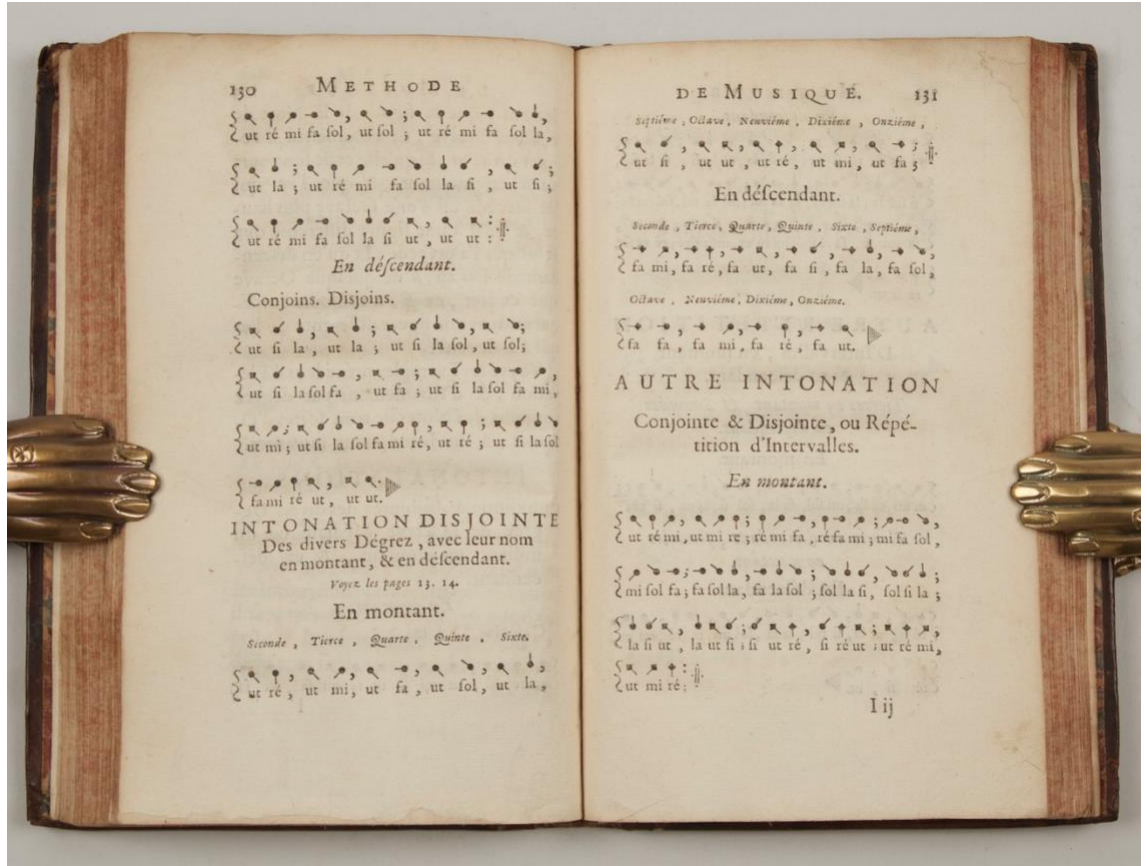 130 METHODE
ut ré mi fa sol, ut sol ; ut ré mi fa sol la,
ut la ; ut ré mi fa sol la si , ut si ;
ut ré mi fa sol la si ut , ut ut :
En déscendant.
Conjoins. Disjoins.
ut si la , ut la ; ut si la sol , ut sol;
ut si la sol fa , ut fa ; ut si la sol fa mi,
ut mi ; ut si la sol fa mi ré, ut ré ; ut si la sol
fa mi ré ut , ut ut.
INTONATION DISJOINTE
Des divers Dégrez , avec leur nom
en montant , & en déscendant.
Voyez les pages 13. 14.
En montant.
Seconde , Tierce , Quarte , Quinte , Sixte.
ut ré , ut mi , ut fa , ut sol , ut la ,
DE MUSIQUE. 131
Septiéme , Octave , Neuviéme , Dixiéme , Onziéme ,
ut si , ut ut , ut ré , ut mi , ut fa ;
En déscendant.
Seconde , Tierce , Quarte , Quinte , Sixte , Septiéme ,
fa mi, fa ré , fa ut, fa si , fa la , fa sol ,
Octave , Neuviéme , Dixiéme , Onziéme.
fa fa , fa mi , fa ré , fa ut.
AUTRE INTONATION
Conjointe & Disjointe , ou Répé-
tition d'Intervalles.
En montant.
ut ré mi , ut mi re ; ré mi fa , ré fa mi ; mi fa sol ,
mi sol fa ; fa sol la , fa la sol ; sol la si , sol si la ;
la si ut , la ut si ; si ut ré , si ré ut ; ut ré mi ,
ut mi ré :
I ij